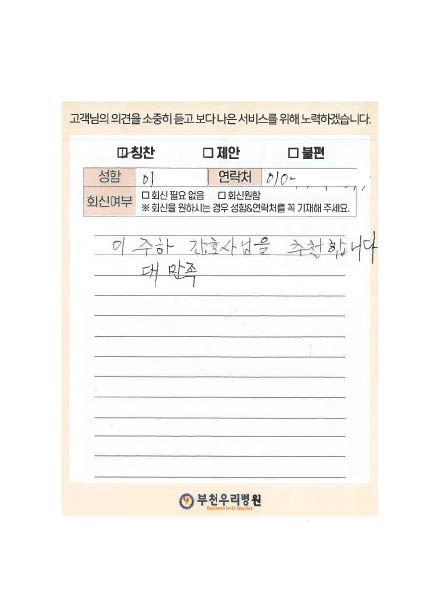 고객님의 의견을 소중히 듣고 보다 나은 서비스를 위해 노력하겠습니다.
☑ 칭찬 □ 제안 □ 불편
성함 이 연락처 010-
회신여부 □ 회신 필요 없음 □ 회신원함
※ 회신을 원하시는 경우 성함&연락처를 꼭 기재해 주세요.
이 주하 간호사님을 추천합니다
대 만족
부천우리병원